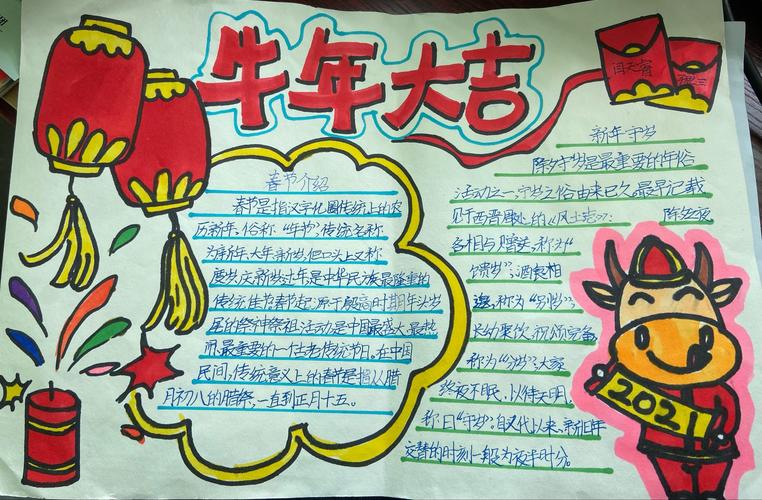 牛年大吉
春节介绍
春节是指汉字化圈传统上的农
历新年,俗称,"年节,传统名称
为新年、大年、新岁,但口头上又称
度岁、庆新岁、过年是中华民族最隆重的
传统佳节春节起源于殷商时期年头岁
尾的祭神祭祖活动是中国最盛大、最热
闹、最重要的一个古老传统节日。在中国
民间,传统意义上的春节是指从腊
月初八的腊祭,一直到正月十五。
新年守岁
除夕守岁是最重要的年俗
活动之一,守岁之俗由来已久。最早记载
见于西晋周处的《风土志》:
除夕之夜
各相与赠送,称为"
馈岁";酒食相
邀,称为"别岁";
长幼聚饮,祝颂完备,
称为"分岁";大家
终夜不眠,以待天明,
称曰"守岁。自汉代以来,新旧年
交替的时刻一般为夜半时分。
2021